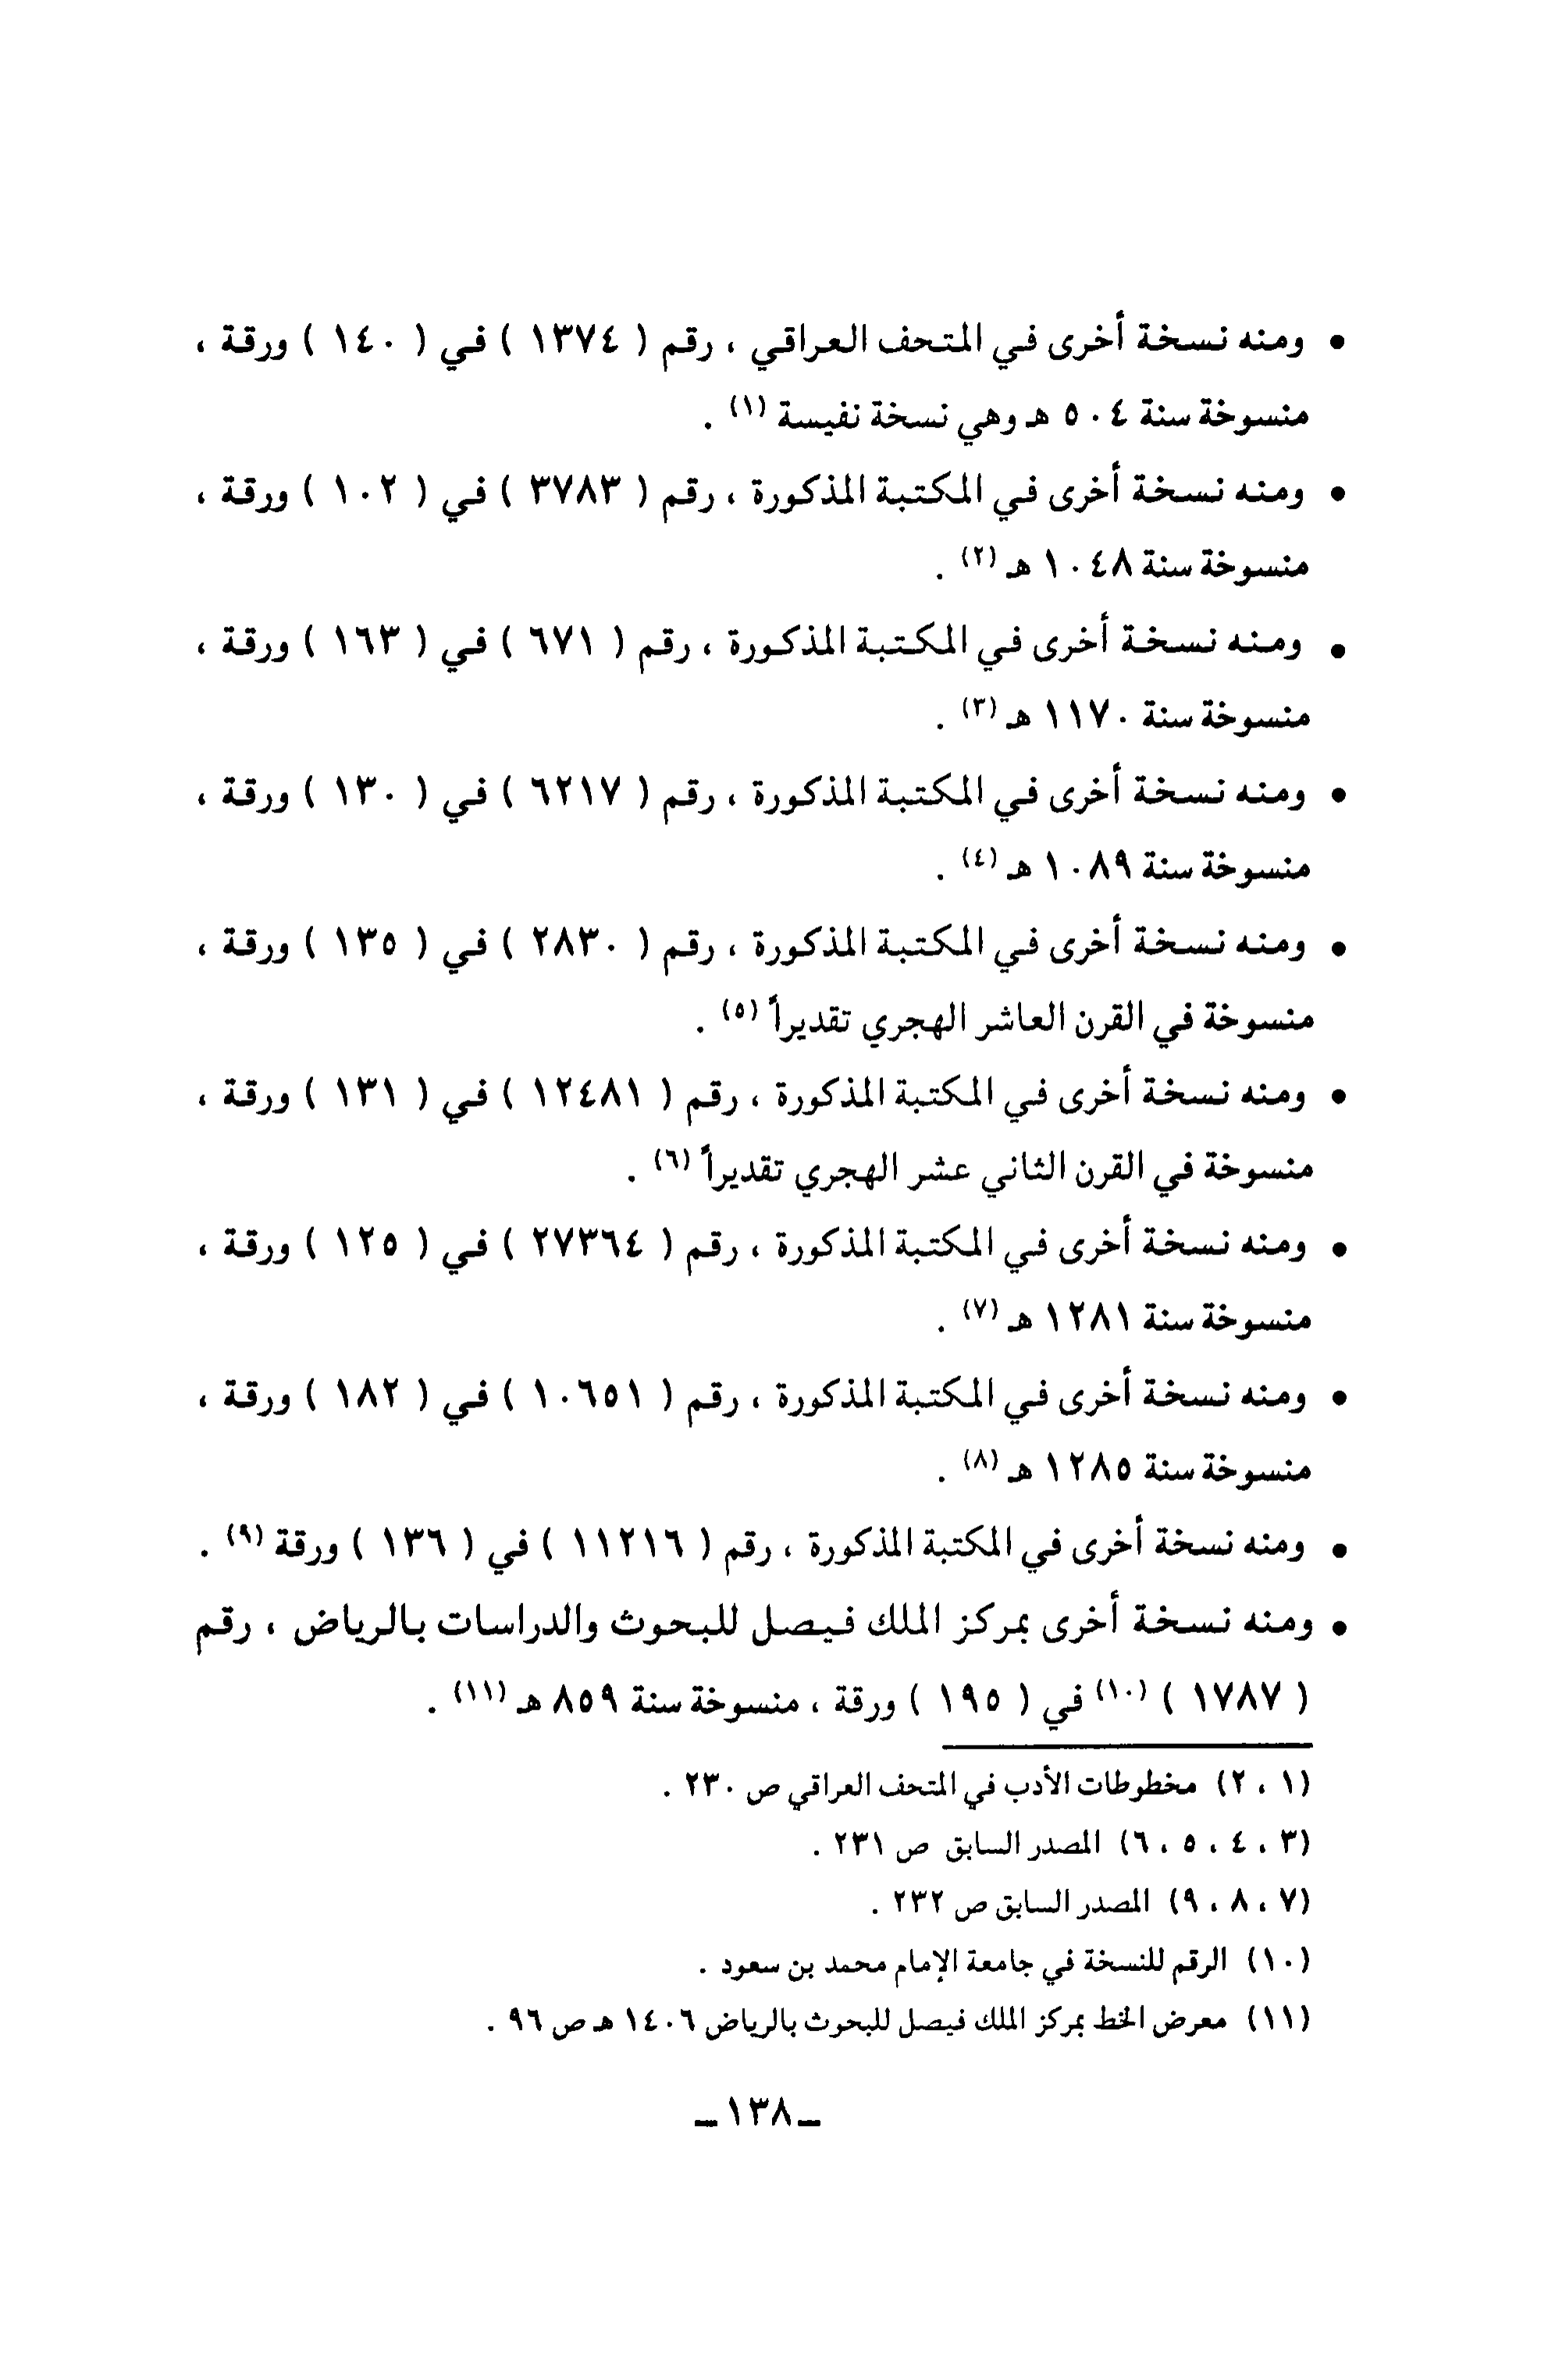 • ومنه نسخة أخرى في المتحف العراقي ، رقم ( ١٣٧٤ ) في ( ١٤٠ ) ورقة ،
منسوخة سنة ٥٠٤ هـ وهي نسخة نفيسة (١) .
• ومنه نسخة أخرى في المكتبة المذكورة ، رقم ( ٣٧٨٣ ) في ( ١٠٢ ) ورقة ،
منسوخة سنة ١٠٤٨ هـ (٢) .
• ومنه نسخة أخرى في المكتبة المذكورة ، رقم ( ٦٧١ ) في ( ١٦٣ ) ورقة ،
منسوخة سنة ١١٧٠ هـ (٣) .
• ومنه نسخة أخرى في المكتبة المذكورة ، رقم ( ٦٢١٧ ) في ( ١٣٠ ) ورقة ،
منسوخة سنة ١٠٨٩ هـ (٤) .
• ومنه نسخة أخرى في المكتبة المذكورة ، رقم ( ٢٨٣٠ ) في ( ١٣٥ ) ورقة ،
منسوخة في القرن العاشر الهجري تقديراً (٥) .
• ومنه نسخة أخرى في المكتبة المذكورة ، رقم ( ١٢٤٨١ ) في ( ١٣١ ) ورقة ،
منسوخة في القرن الثاني عشر الهجري تقديراً (٦) .
• ومنه نسخة أخرى في المكتبة المذكورة ، رقم ( ٢٧٣٦٤ ) في ( ١٢٥ ) ورقة ،
منسوخة سنة ١٢٨١ هـ (٧) .
• ومنه نسخة أخرى في المكتبة المذكورة ، رقم ( ١٠٦٥١ ) في ( ١٨٢ ) ورقة ،
منسوخة سنة ١٢٨٥ هـ (٨) .
• ومنه نسخة أخرى في المكتبة المذكورة ، رقم ( ١١٢١٦ ) في ( ١٣٦ ) ورقة (٩) .
• ومنه نسخة أخرى بمركز الملك فيصل للبحوث والدراسات بالرياض ، رقم
( ١٧٨٧ ) (١٠) في ( ١٩٥ ) ورقة ، منسوخة سنة ٨٥٩ هـ (١١) .
(١ ، ٢) مخطوطات الأدب في المتحف العراقي ص ٢٣٠ .
(٣ ، ٤ ، ٥ ، ٦) المصدر السابق ص ٢٣١ .
(٧ ، ٨ ، ٩) المصدر السابق ص ٢٣٢ .
(١٠) الرقم للنسخة في جامعة الإمام محمد بن سعود .
(١١) معرض الخط بمركز الملك فيصل للبحوث بالرياض ١٤٠٦ هـ ص ٩٦ .
ـ ١٣٨ ـ